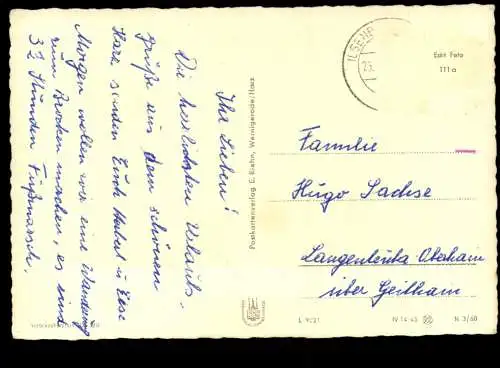 Ihr Lieben!
Die herzlichsten Urlaubs-
grüße aus dem schönen
Harz senden Euch Hubert u. Ilse
Morgen wollen wir eine Wanderung
zum Brocken machen, es sind
3½ Stunden Fußmarsch.
Postkartenverlag C. Wernigerode/Harz
ILSEN
23.
Echt Foto
111a
Familie
Hugo Sachse
Langenleuba Oberhain
über Geilhain
L 9021
IV-14-45
N 3/60